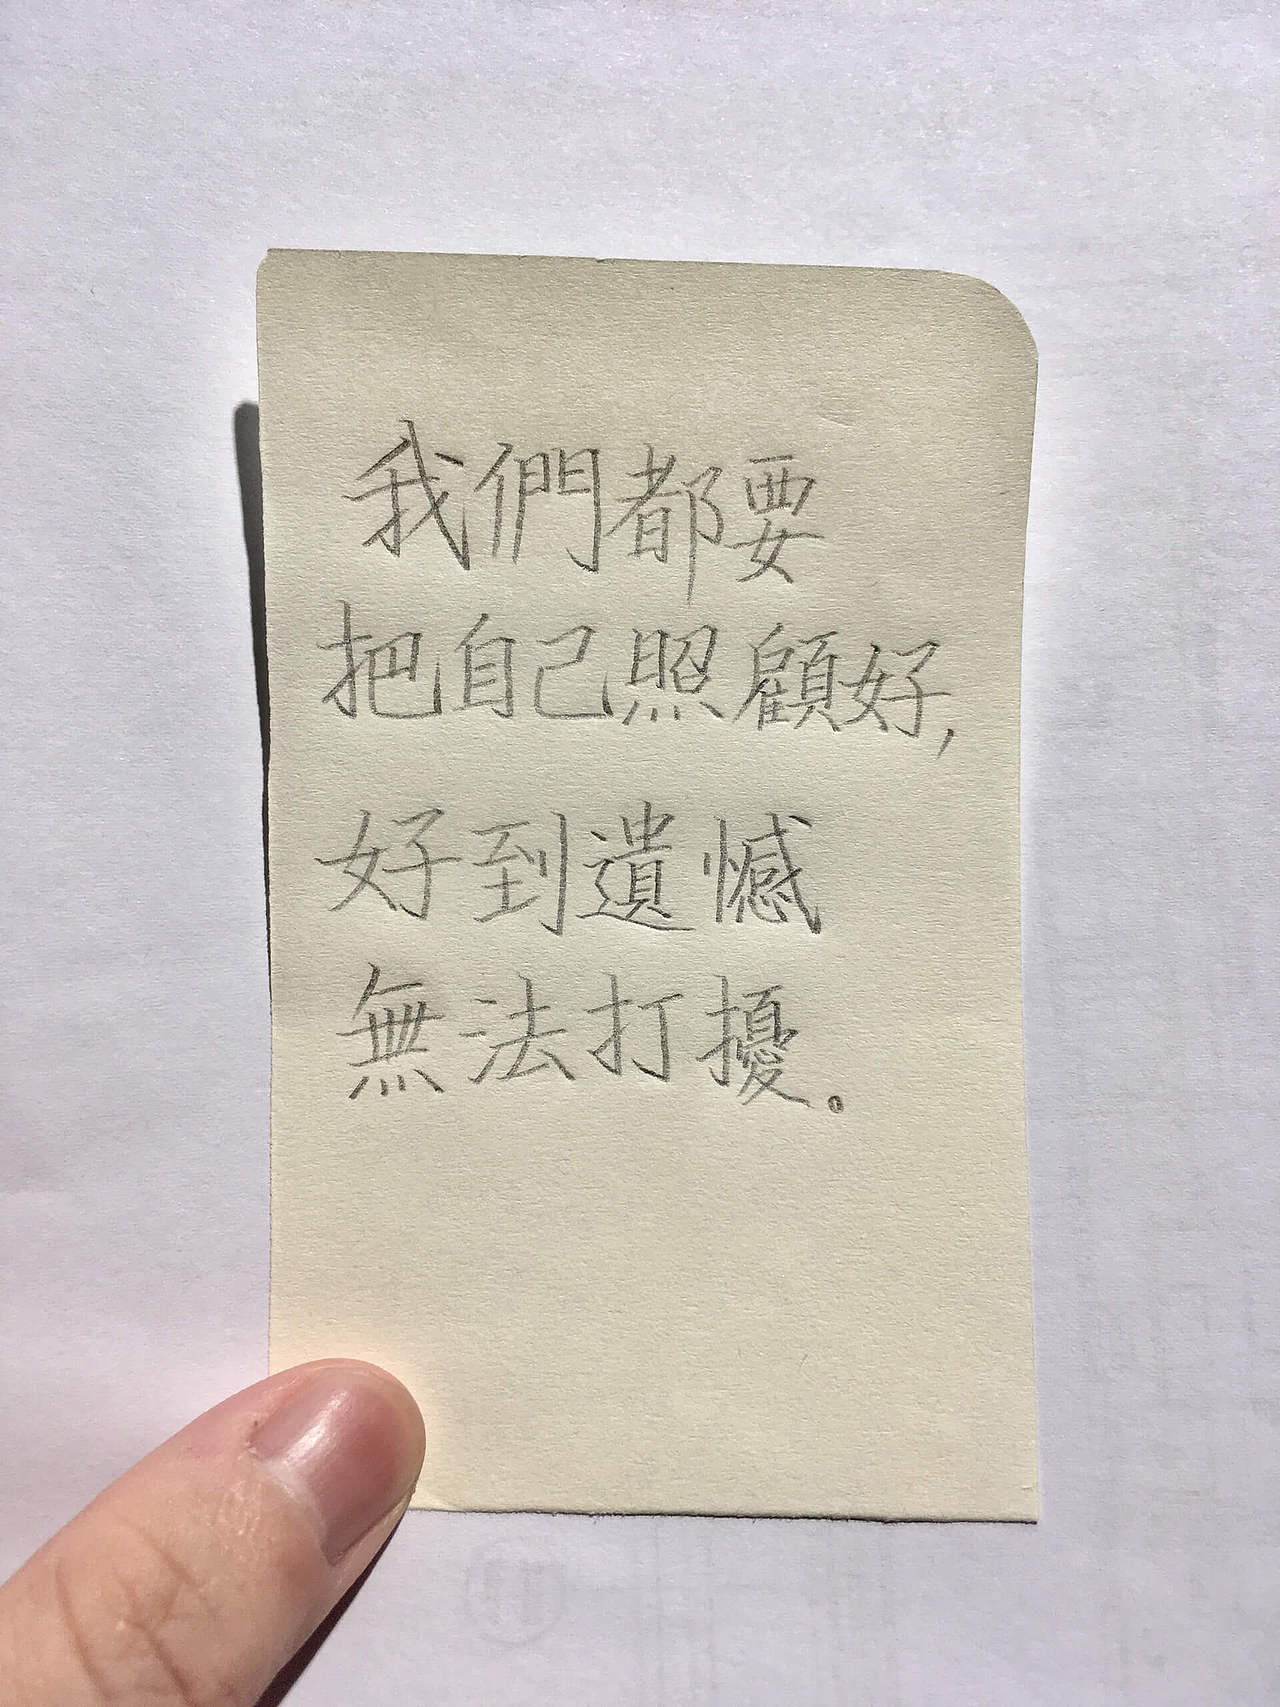 我們都要
把自己照顧好,
好到遺憾
無法打擾。